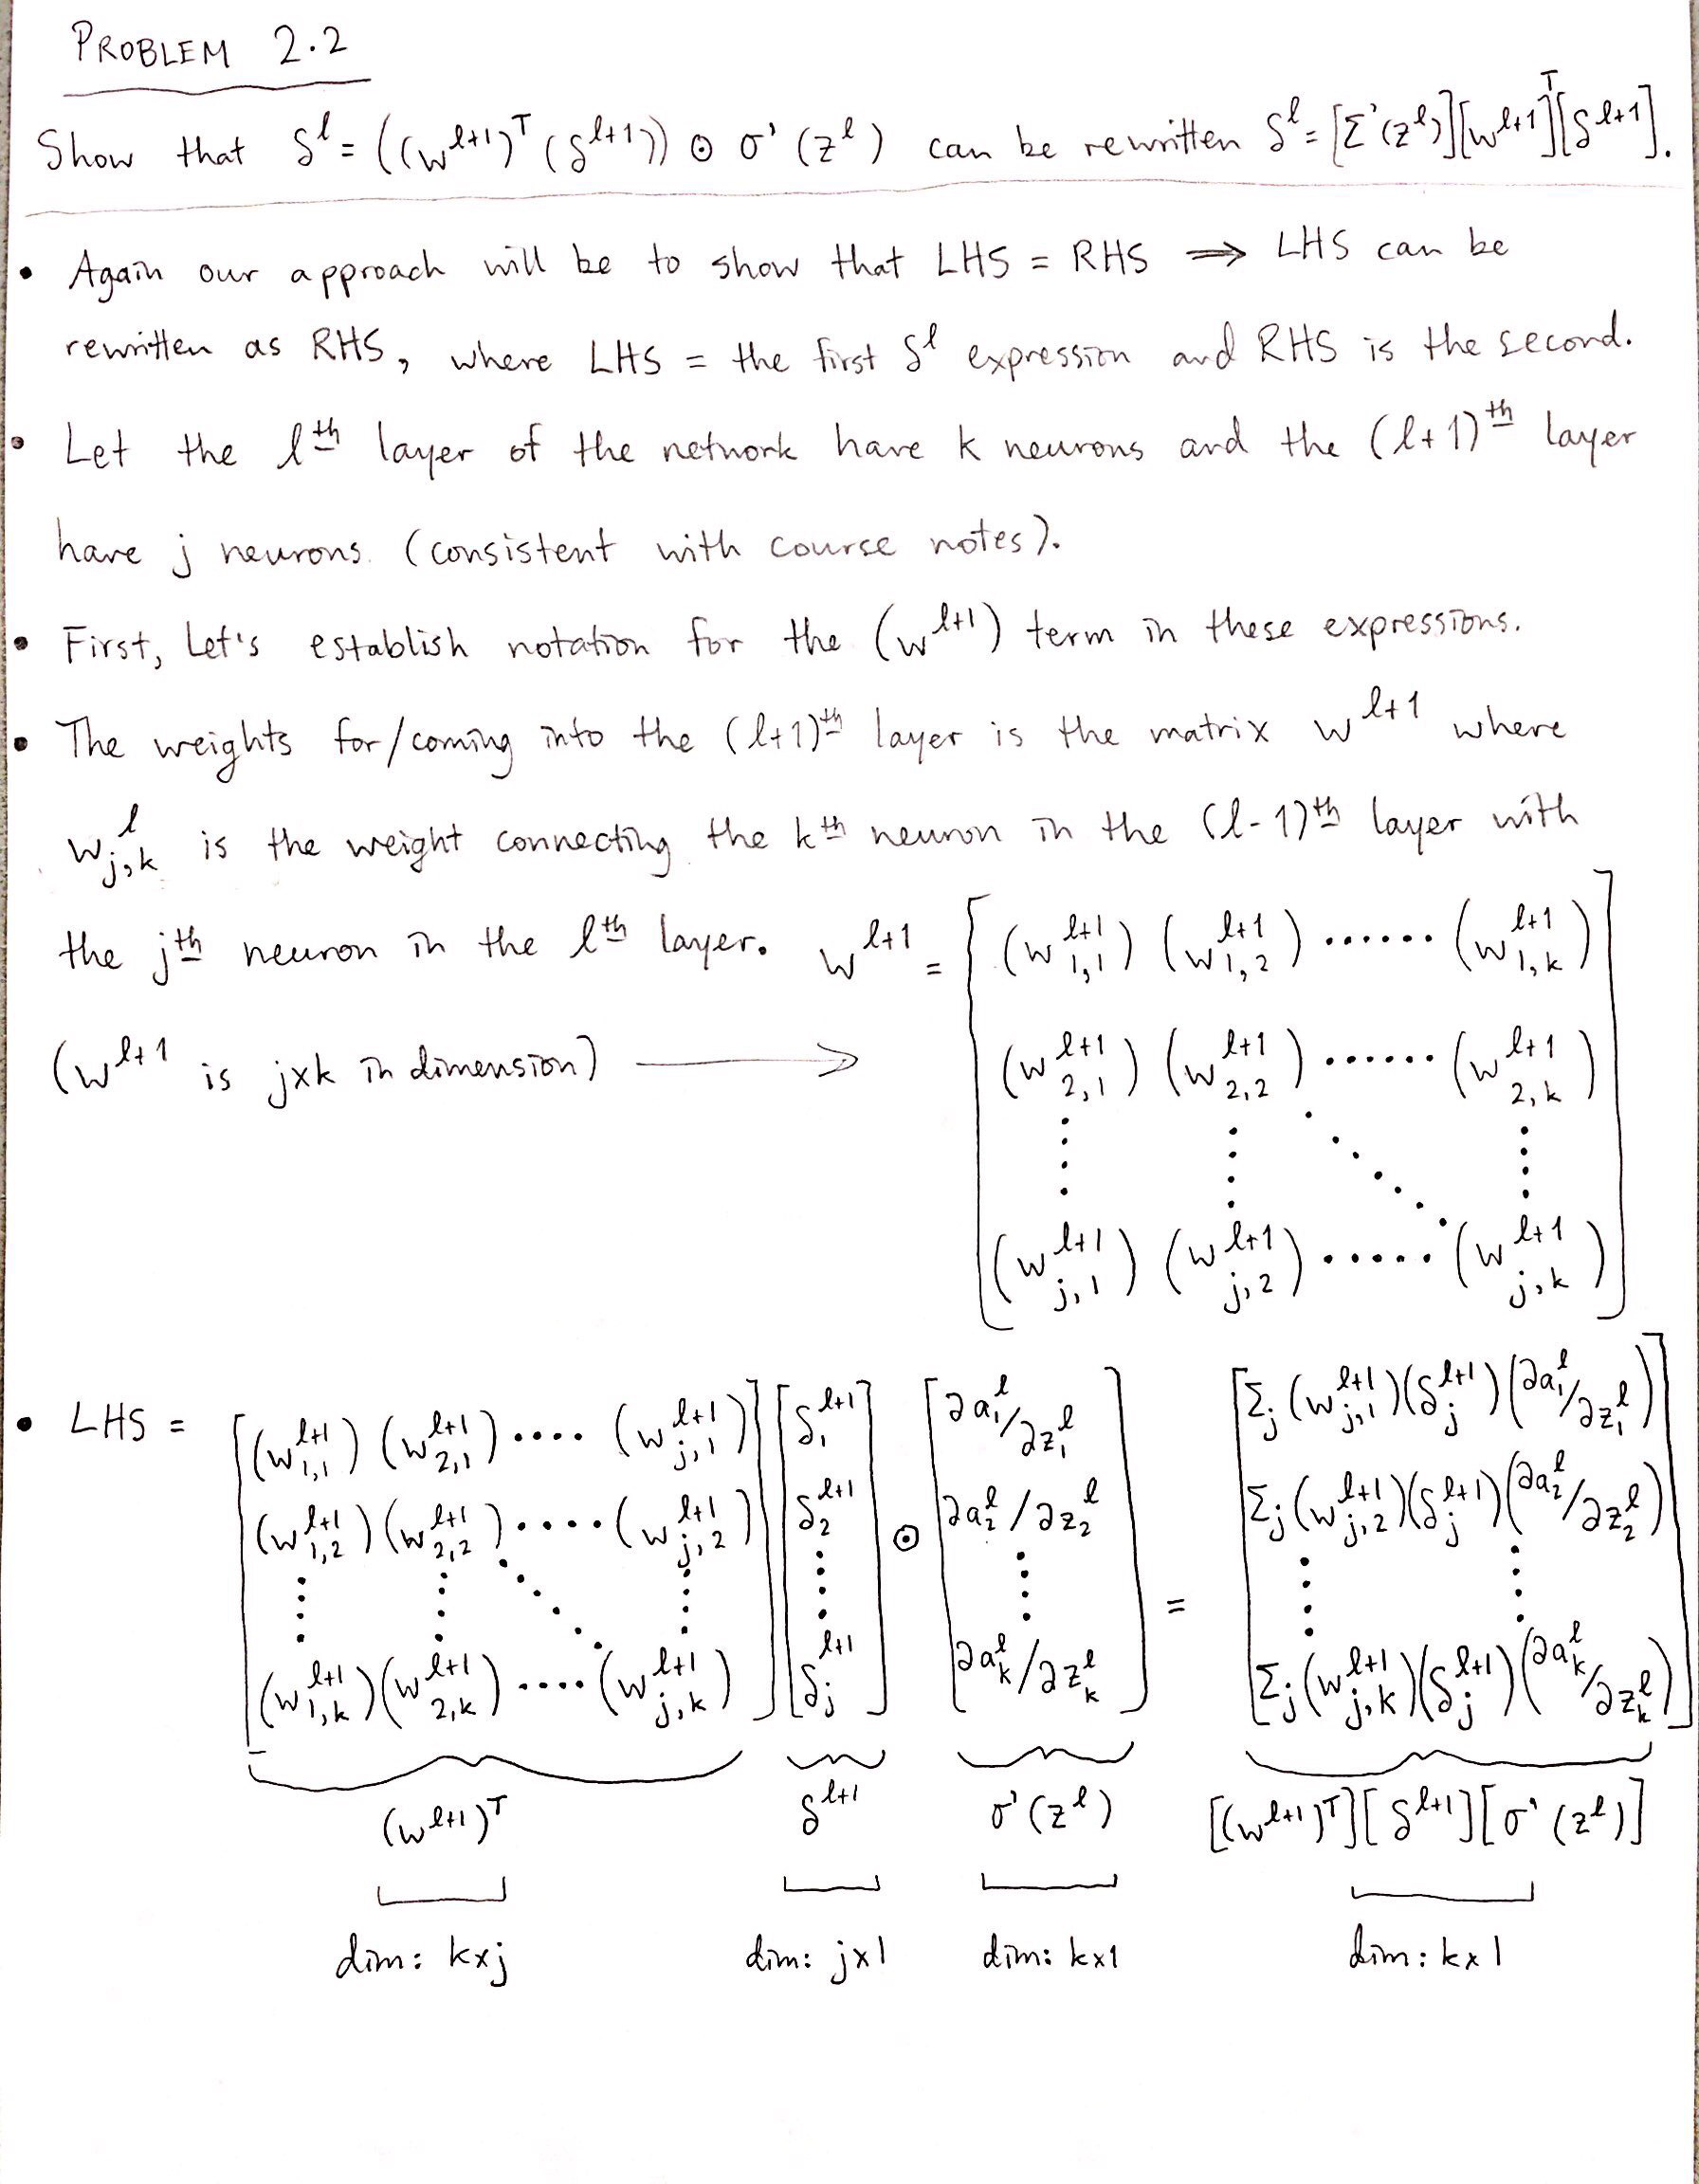 PROBLEM 2.2
Show that δ^l = ((w^{l+1})^T (δ^{l+1})) ⊙ σ'(z^l) can be rewritten δ^l = [Σ'(z^l)][w^{l+1}]^T[δ^{l+1}].
• Again our approach will be to show that LHS = RHS ⟹ LHS can be
rewritten as RHS, where LHS = the first δ^l expression and RHS is the second.
• Let the l^{th} layer of the network have k neurons and the (l+1)^{th} layer
have j neurons. (consistent with course notes).
• First, Let's establish notation for the (w^{l+1}) term in these expressions.
• The weights for/coming into the (l+1)^{th} layer is the matrix w^{l+1} where
w^l_{j,k} is the weight connecting the k^{th} neuron in the (l-1)^{th} layer with
the j^{th} neuron in the l^{th} layer. w^{l+1} = [ (w^{l+1}_{1,1}) (w^{l+1}_{1,2}) ...... (w^{l+1}_{1,k})
(w^{l+1} is jxk in dimension) ⟶ (w^{l+1}_{2,1}) (w^{l+1}_{2,2}) ...... (w^{l+1}_{2,k})
(w^{l+1}_{j,1}) (w^{l+1}_{j,2}) ...... (w^{l+1}_{j,k}) ]
• LHS = [ (w^{l+1}_{1,1}) (w^{l+1}_{2,1}) .... (w^{l+1}_{j,1}) ] [ δ^{l+1}_1 ] [ ∂a^l_1/∂z^l_1 ] [ Σ_j (w^{l+1}_{j,1})(δ^{l+1}_j)(∂a^l_1/∂z^l_1) ]
(w^{l+1}_{1,2}) (w^{l+1}_{2,2}) .... (w^{l+1}_{j,2}) δ^{l+1}_2 ⊙ ∂a^l_2/∂z^l_2 = Σ_j (w^{l+1}_{j,2})(δ^{l+1}_j)(∂a^l_2/∂z^l_2)
(w^{l+1}_{1,k}) (w^{l+1}_{2,k}) .... (w^{l+1}_{j,k}) δ^{l+1}_j ∂a^l_k/∂z^l_k Σ_j (w^{l+1}_{j,k})(δ^{l+1}_j)(∂a^l_k/∂z^l_k)
(w^{l+1})^T δ^{l+1} σ'(z^l) [(w^{l+1})^T][δ^{l+1}][σ'(z^l)]
dim: kxj dim: jx1 dim: kx1 dim: kx1